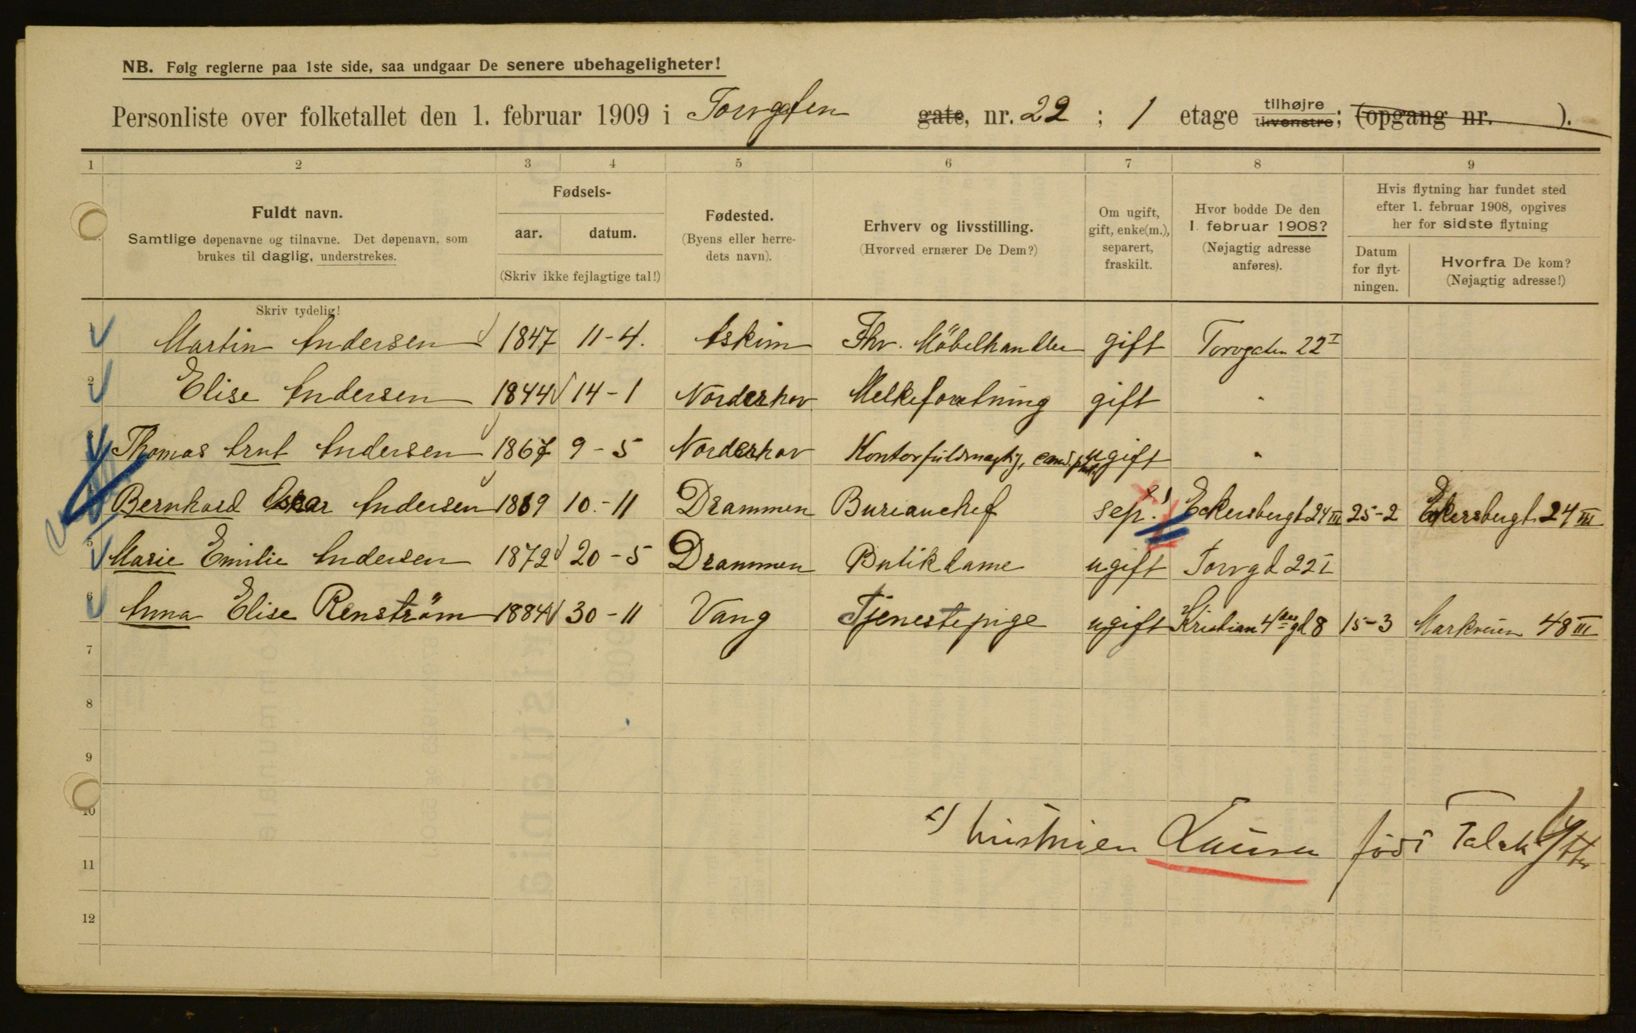 NB. Følg reglerne paa 1ste side, saa undgaar De senere ubehageligheter!
Personliste over folketallet den 1. februar 1909 i Torvgaten gate, nr. 22 ; 1 etage tilhøjre tilvenstre; (opgang nr. ).
1 2 3 4 5 6 7 8 9
Fuldt navn.
Samtlige døpenavne og tilnavne. Det døpenavn, som
brukes til daglig, understrekes.
Skriv tydelig!
Fødsels-
aar. datum.
(Skriv ikke fejlagtige tal!)
Fødested.
(Byens eller herre-
dets navn).
Erhverv og livsstilling.
(Hvorved ernærer De Dem?)
Om ugift,
gift, enke(m.),
separert,
fraskilt.
Hvor bodde De den
1. februar 1908?
(Nøjagtig adresse
anføres).
Hvis flytning har fundet sted
efter 1. februar 1908, opgives
her for sidste flytning
Datum
for flyt-
ningen.
Hvorfra De kom?
(Nøjagtig adresse!)
Martin Andersen 1847 11-4. Askim Fhv. Möbelhandler gift Torvgaten 22 I
2 Elise Andersen 1844 14-1 Norderhov Melkeforretning gift "
Thomas Arnt Andersen 1867 9-5 Norderhov Kontorfuldmægtig, cand. phil. ugift "
Bernhard Oscar Andersen 1869 10.-11 Drammen Bureauchef sep. x) Eckersbergt 24 III 25-2 Eckersbergt. 24 III
5 Marie Emilie Andersen 1872 20-5 Drammen Butikdame ugift Torvgd 22 I
6 Anna Elise Renström 1884 30-11 Vang Tjenestepige ugift Kristian 4des gd 8 15-3 Markveien 48 III
7
8
9
10
x) hustruen Laura född Falck Ytter
11
12